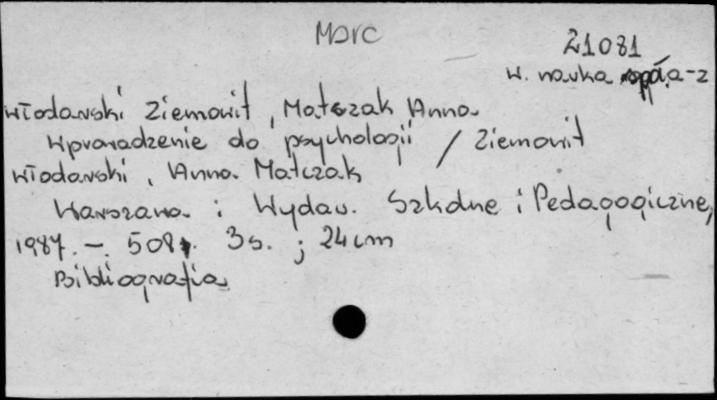 Marc
21081
w. nauka
Włodarski Ziemowit, Matczak Anna
Wprowadzenie do psychologii / Ziemowit
Włodarski, Anna Matczak
Warszawa : Wydaw. Szkolne i Pedagogiczne,
1987. – 508, 3 s. ; 24 cm
Bibliografia